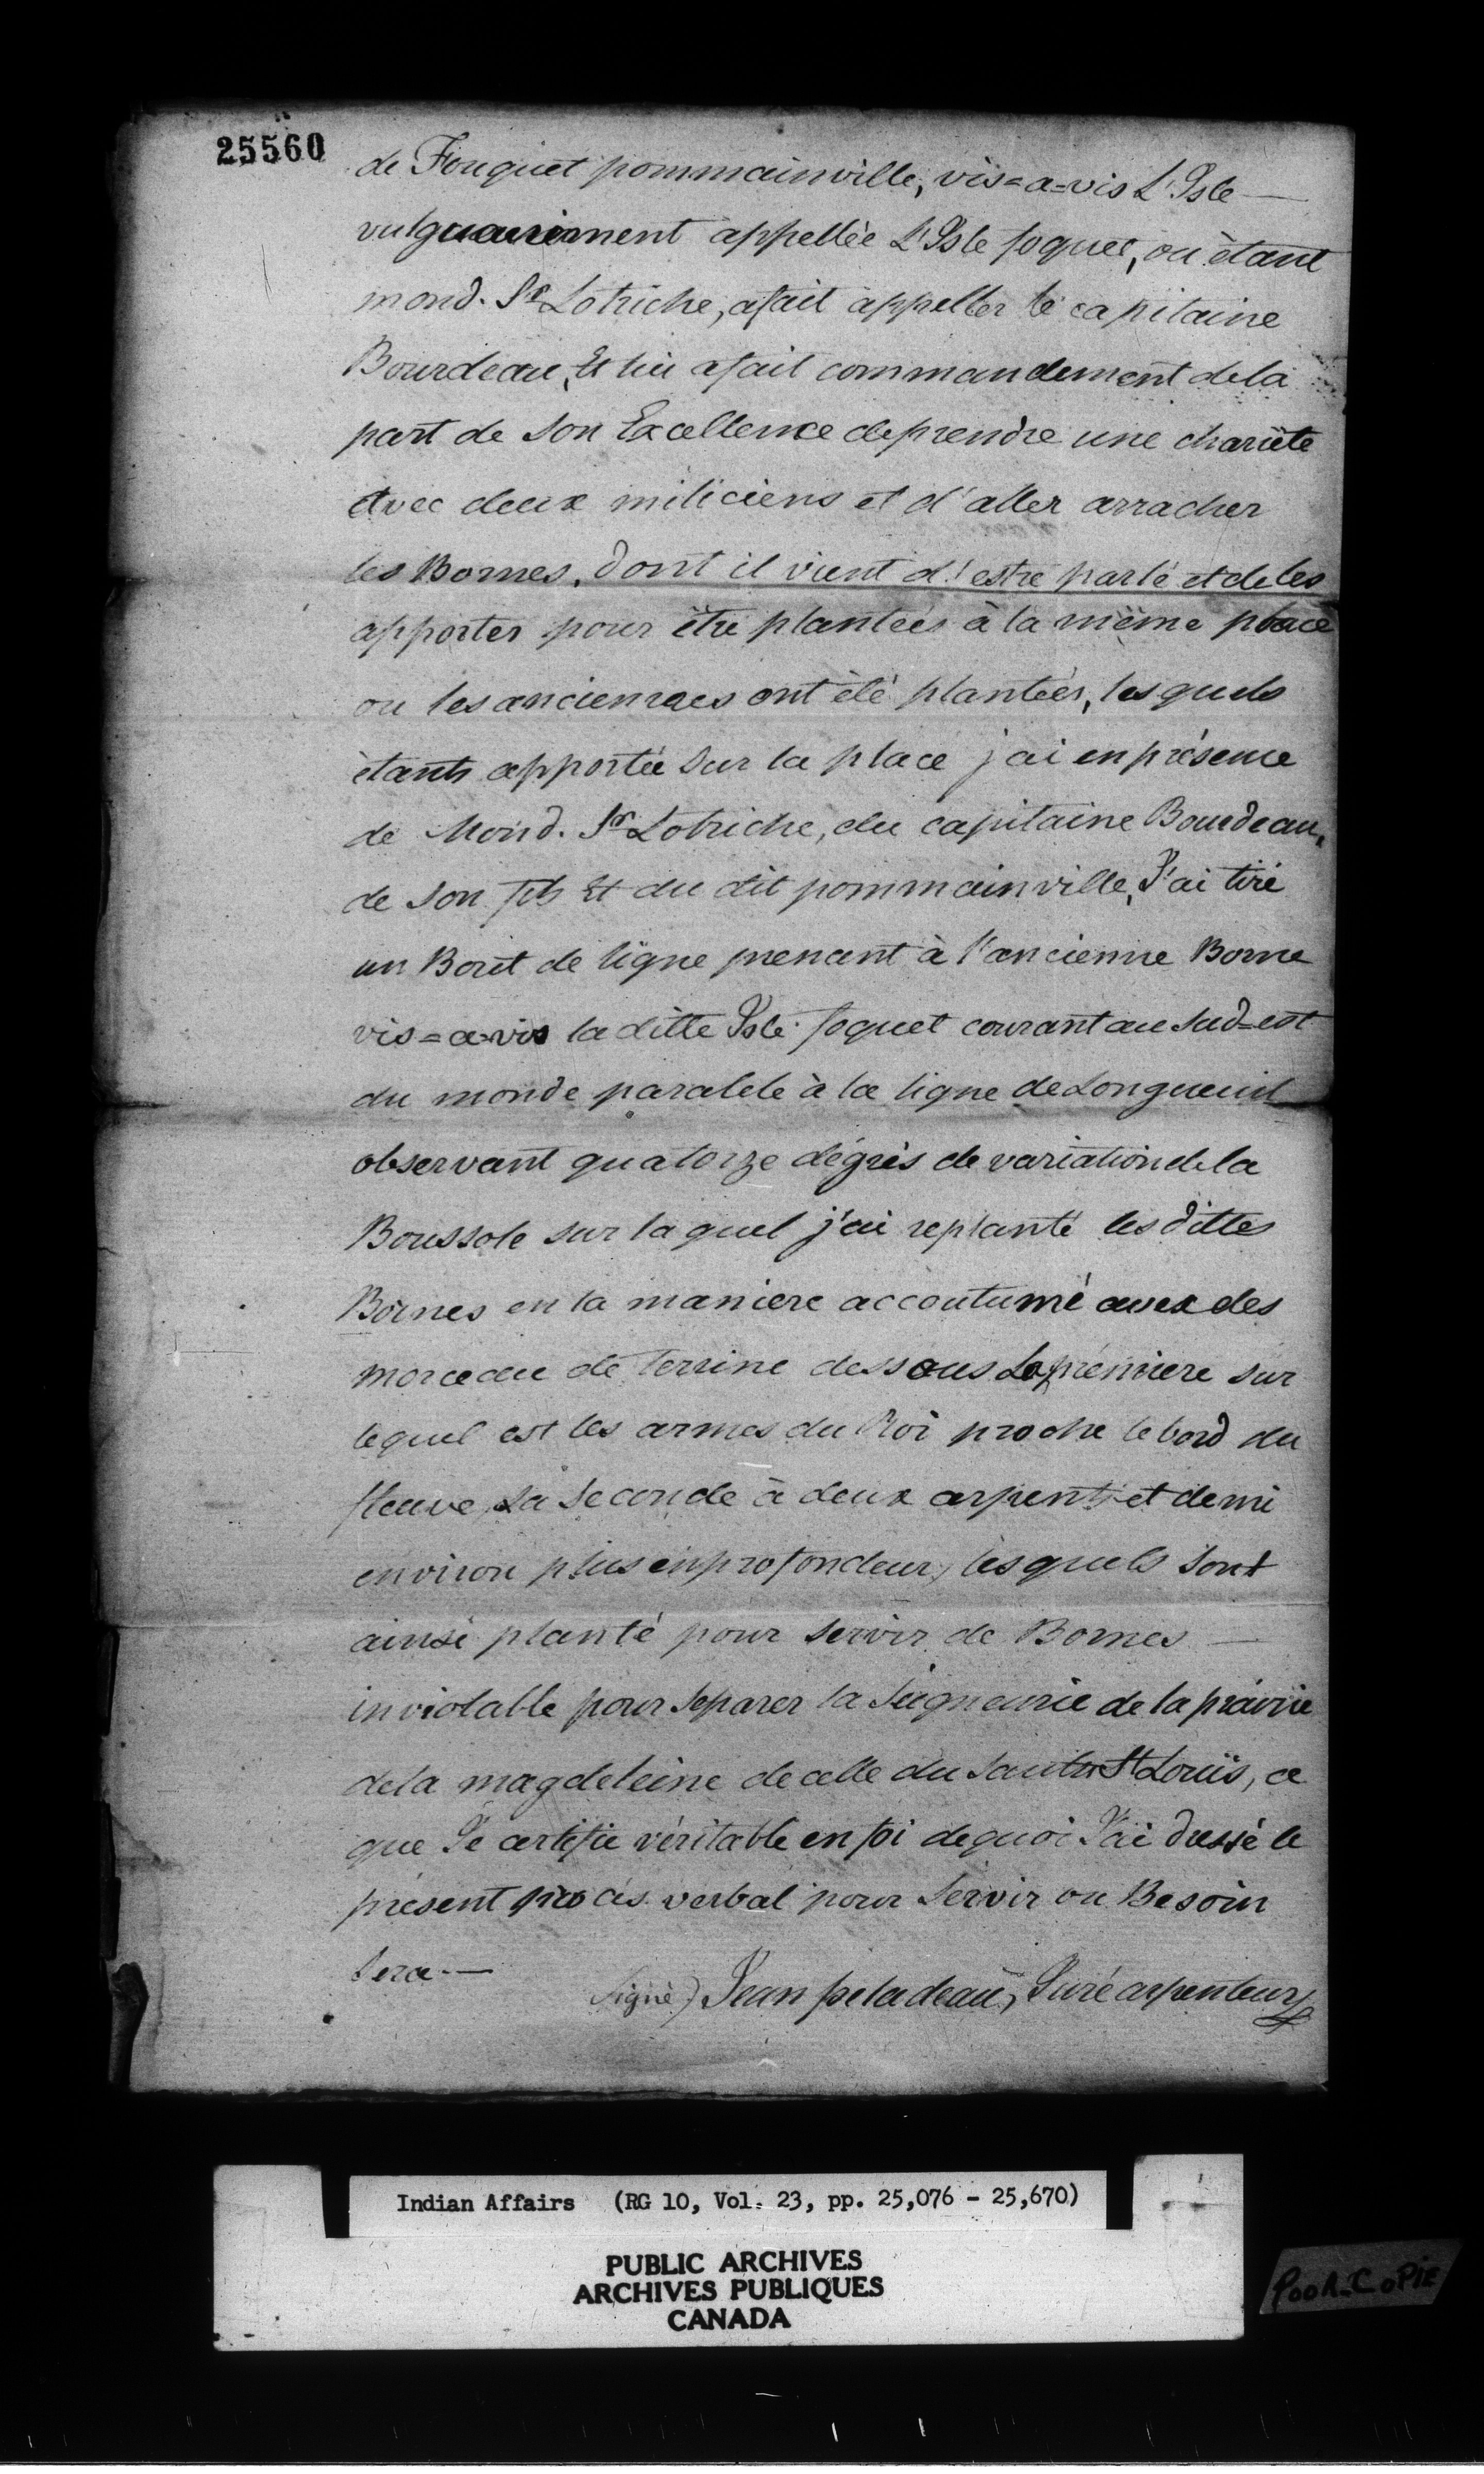 25560
de Fouquet pommainville, vis=a=vis L'Isle —
vulguairement appellèe L'Isle foquet, où ètant
mond. Sr Lotriche, afait àppeller le capitaine
Bourdeau, Et lui afait commandement dela
part de Son Excellence deprendre une chariète
Avec deux miliciens et d'aller arracher
les Bornes, dont il vient d'estre parlé et de les
apporter pour être plantées à la même place
ou les anciennes ont èté plantées, les quels
ètants apportée sur la place j'ai en présence
de Mond. Sr Lotriche, du capitaine Bourdeau,
de son fils Et du dit pommainville, J'ai tiré
un Bout de ligne prenant à l'ancienne Borne
vis=a=vis la ditte Isle foquet courant au Sud=est
du monde paralele à la ligne de Longueuil
observant quatorze dégrès de variation de la
Boussole sur la quel j'ai replanté les dittes
Bornes en la maniere accoutumé avex des
morceau de terrine dessous La premiere sur
lequel est les armes du Roi proche le bord du
fleuve, La Seconde à deux arpents et demi
environ plus enprofondeur, lesquels Sont
ainsi planté pour Servir de Bornes —
inviolable pour Separer la Seigneurie de la prairie
dela magdeleine de celle du Sault St Louis, ce
que Je certifie véritable en foi dequoi J'ai dressé le
présent procès verbal pour Servir ou Besoin
Sera —
Signé) Jean peladeau, Juré arpenteur
Indian Affairs (RG 10, Vol. 23, pp. 25,076 - 25,670)
PUBLIC ARCHIVES
ARCHIVES PUBLIQUES
CANADA
POOR-COPIE